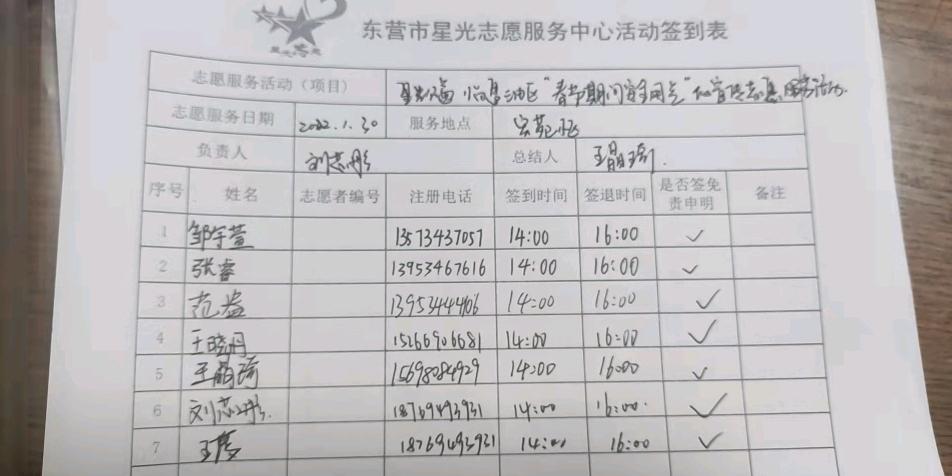 东营市星光志愿服务中心活动签到表
志愿服务活动（项目） "春节期间安全用气" 宣传志愿服务活动.
志愿服务日期 2022.1.30 服务地点
负责人 刘志彤 总结人 王晶琦.
序号 姓名 志愿者编号 注册电话 签到时间 签退时间 是否签免责申明 备注
1 邹宇萱 13573437057 14:00 16:00 ✓
2 张睿 13953467616 14:00 16:00 ✓
3 范益 13953444406 14:00 16:00 ✓
4 王晓丹 15266906681 14:00 16:00 ✓
5 王晶琦 15698084929 14:00 16:00 ✓
6 刘志彤. 18769493931 14:00 16:00. ✓
7 18769493931 14:00 16:00 ✓